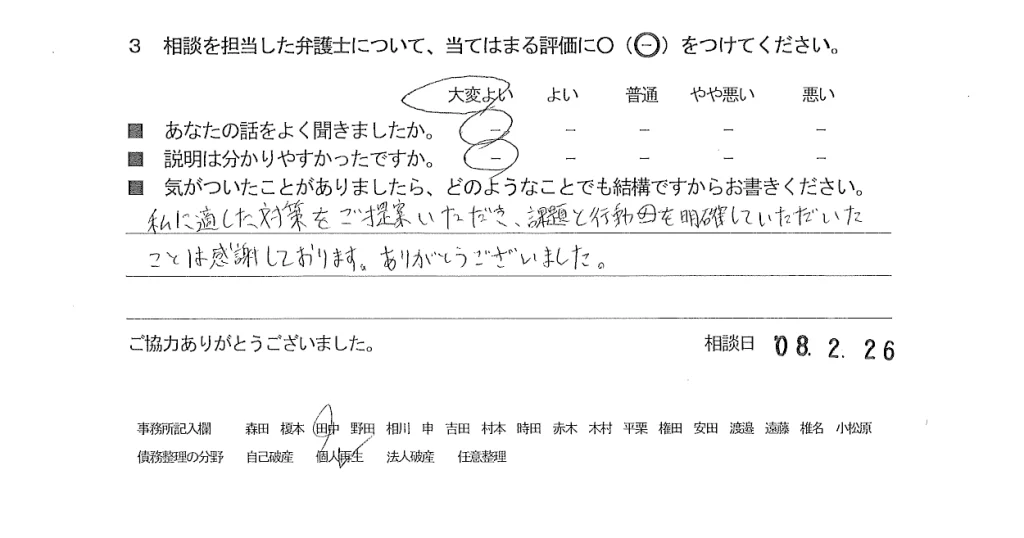 3 相談を担当した弁護士について、当てはまる評価に○（⊖）をつけてください。
大変よい よい 普通 やや悪い 悪い
■ あなたの話をよく聞きましたか。 － － － － －
■ 説明は分かりやすかったですか。 － － － － －
■ 気がついたことがありましたら、どのようなことでも結構ですからお書きください。
私に適した対策をご提案いただき、課題と行動を明確していただいた
ことは感謝しております。ありがとうございました。
ご協力ありがとうございました。 相談日 '08. 2. 26
事務所記入欄 森田 榎木 田中 野田 相川 申 吉田 村本 時田 赤木 木村 平栗 権田 安田 渡邉 遠藤 椎名 小松原
債務整理の分野 自己破産 個人再生 法人破産 任意整理